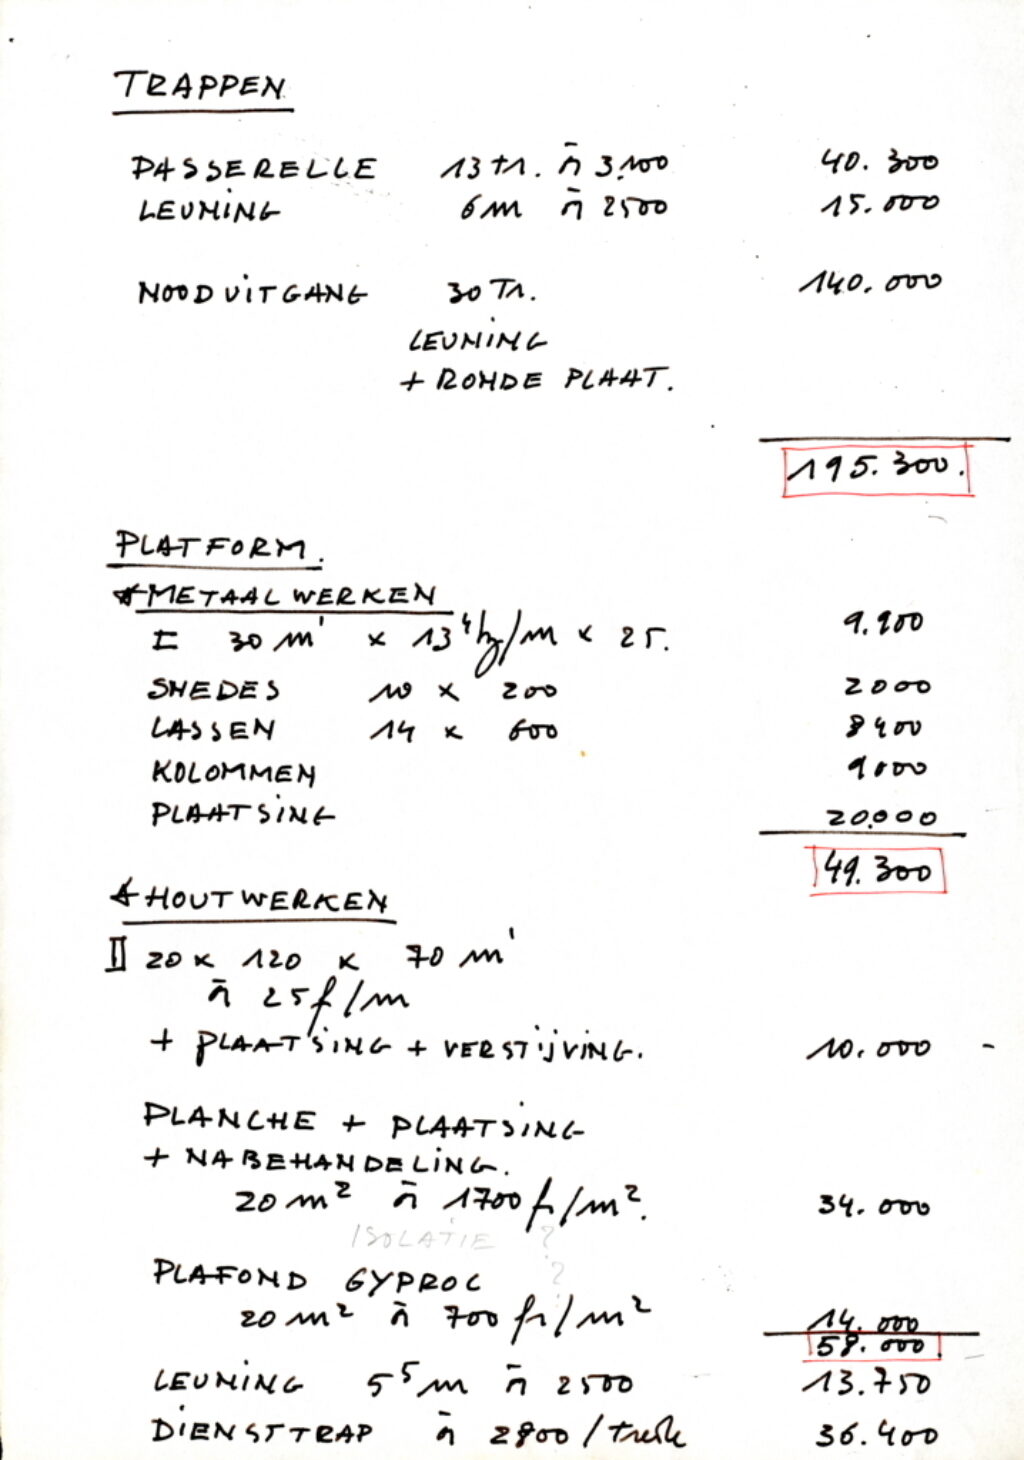 TRAPPEN
PASSERELLE 13 tr. à 3.100 40.300
LEUNING 6m à 2500 15.000
NOODUITGANG 30 Tr. 140.000
LEUNING
+ RONDE PLAAT.
195.300.
PLATFORM.
METAALWERKEN
I 30 m' x 13⁴ kg/m x 25. 9.900
SNEDES 10 x 200 2000
LASSEN 14 x 600 8400
KOLOMMEN 9000
PLAATSING 20.000
49.300
HOUTWERKEN
II 20 x 120 x 70 m'
à 25 f/m
+ PLAATSING + VERSTIJVING. 10.000 -
PLANCHE + PLAATSING
+ NABEHANDELING.
20 m² à 1700 fr/m². 34.000
ISOLATIE ?
PLAFOND GYPROC ?
20 m² à 700 fr/m² 14.000
58.000
LEUNING 5⁵ m à 2500 13.750
DIENSTTRAP à 2800 / trede 36.400